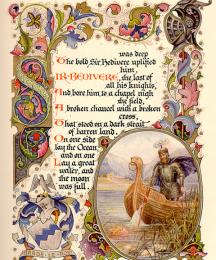 was deep
The bold Sir Bedivere uplifted
him,
SIR BEDIVERE, the last of
all his knights,
And bore him to a chapel nigh
the field,
A broken chancel with a broken
cross,
That stood on a dark strait
of barren land.
On one side
lay the Ocean,
and on one
Lay a great
water, and
the moon
was full.